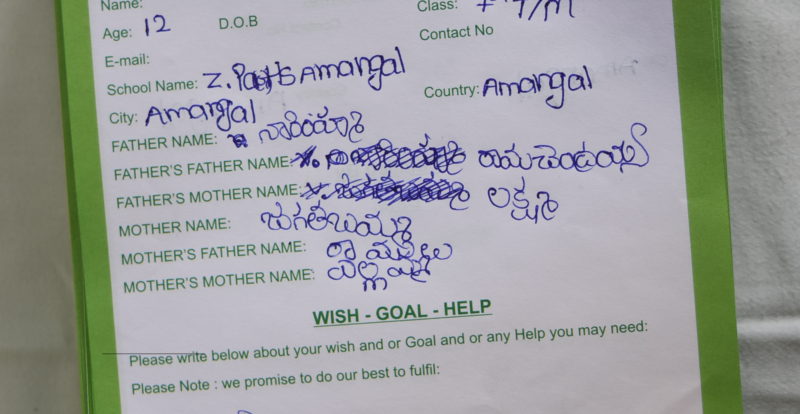 Name: Class: 7/m
Age: 12 D.O.B
E-mail: Contact No
School Name: Z. P. H S Amangal
City: Amangal Country: Amangal
FATHER NAME:
FATHER'S FATHER NAME: రామచంద్రయ్య
FATHER'S MOTHER NAME: లక్ష్మి
MOTHER NAME:
MOTHER'S FATHER NAME: రాములు
MOTHER'S MOTHER NAME: ఎల్లమ్మ
WISH - GOAL - HELP
Please write below about your wish and or Goal and or any Help you may need:
Please Note : we promise to do our best to fulfil: